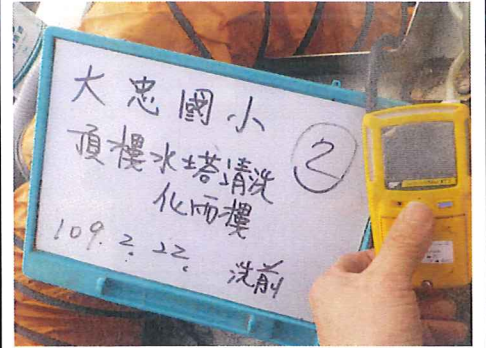 大忠國小
②
頂樓水塔清洗
化雨樓
109. 2. 22.
洗前